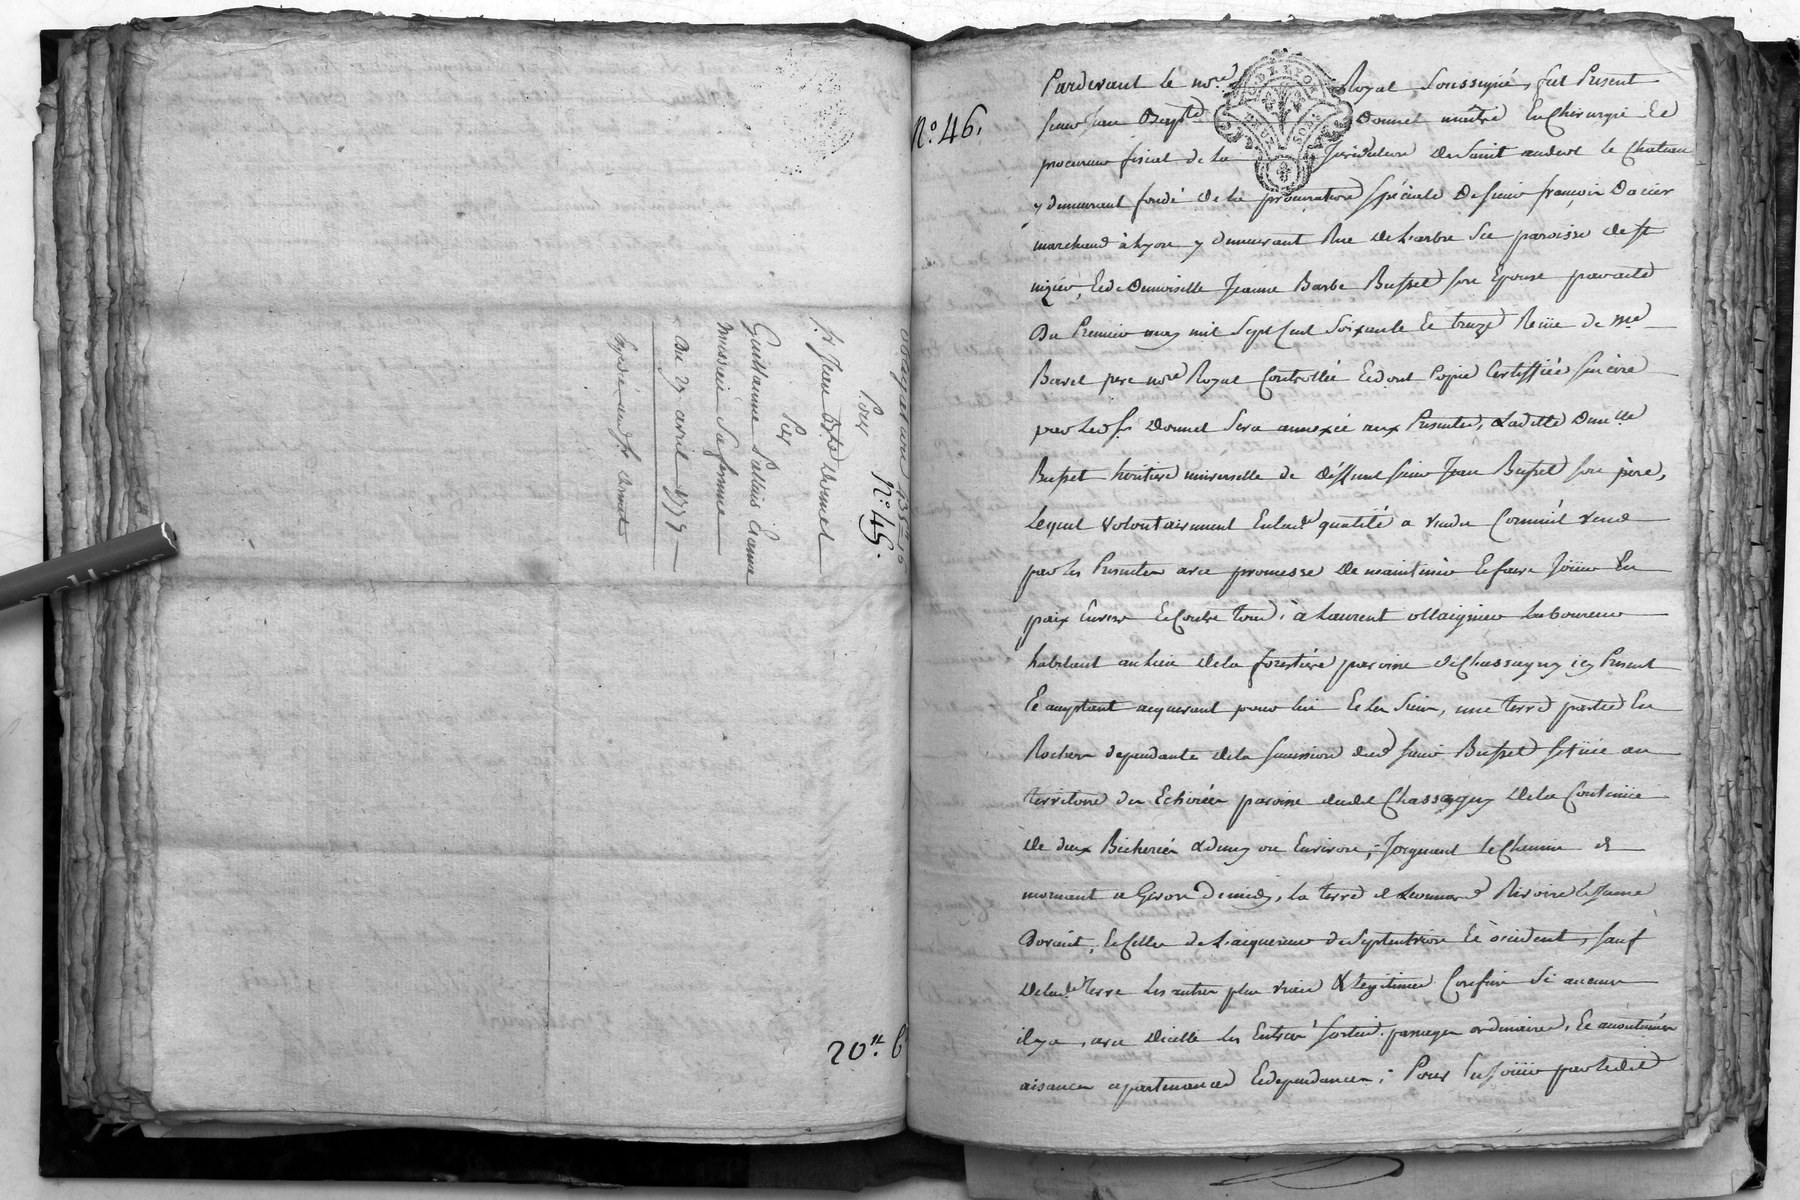 N.° 45.
obligation 135
Pour
Sr. Jean Bpte Donnet
Par
Guillaume Pallais Etienne
messier Sa femme
Du 27 avril 1779
Expedié aud. Sr. Donnet
20.tt 6
N.° 46.
Pardevant le nore. Royal Soussigné, fut Present
sieur Jean Bapte. Donnet maitre En Chirurgie Et
procureur fiscal de la Juridiction De Saint andeol le Chateau
y demeurant fondé de la procuration Spéciale De sieur françois Dacier
marchand à Lyon y demeurant Rue De L'arbre Sec paroisse de St
nizier, Et de Demoiselle Jeanne Barbe Buffet son Epouse par acte
Du Premier may mil Sept Cent Soixante Et treize Reçue de Me
Barel pere nore Royal Controllée Et dont Copie Certiffiée Sincère
par Led. Sr. Donnet Sera annexée aux Presentes, Laditte Demlle
Buffet héritière universelle de déffunt Sieur Jean Buffet son père,
Lequel volontairement En lade. qualité a vendu Comme il vend
par les Presentes avec promesse De maintenir Et faire Jouir En
paix Envers Et Contre tous, à Laurent Laboureur
habitant au lieu de la forestière paroisse de Chassagny icy Present
Et acceptant acquerant pour lui Et les Siens, une terre partie En
Rocher dependante de la Succession dud. Sieur Buffet Située au
territoire des Echirées paroisse dudit Chassagny De la Contenue
De deux Bicherées & demy ou Environ, Joignant le Chemin de
mornant a Givors De midy, La terre de Leonnard Rivoire
Dorient, Et Celles de L'acquereur de Septentrion Et occident, Sauf
De lade. terre Les autres plus vrais & Legitimes Confins Si aucuns
il y a, avec D'icelle Les Entrées Sorties passages ordinaires, Et accoutumés
aisances apartenances Et dependances; Pour En Jouir par Ledit